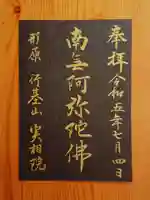 奉拝 令和五年七月四日
南無阿弥陀佛
形原 行基山 実相院